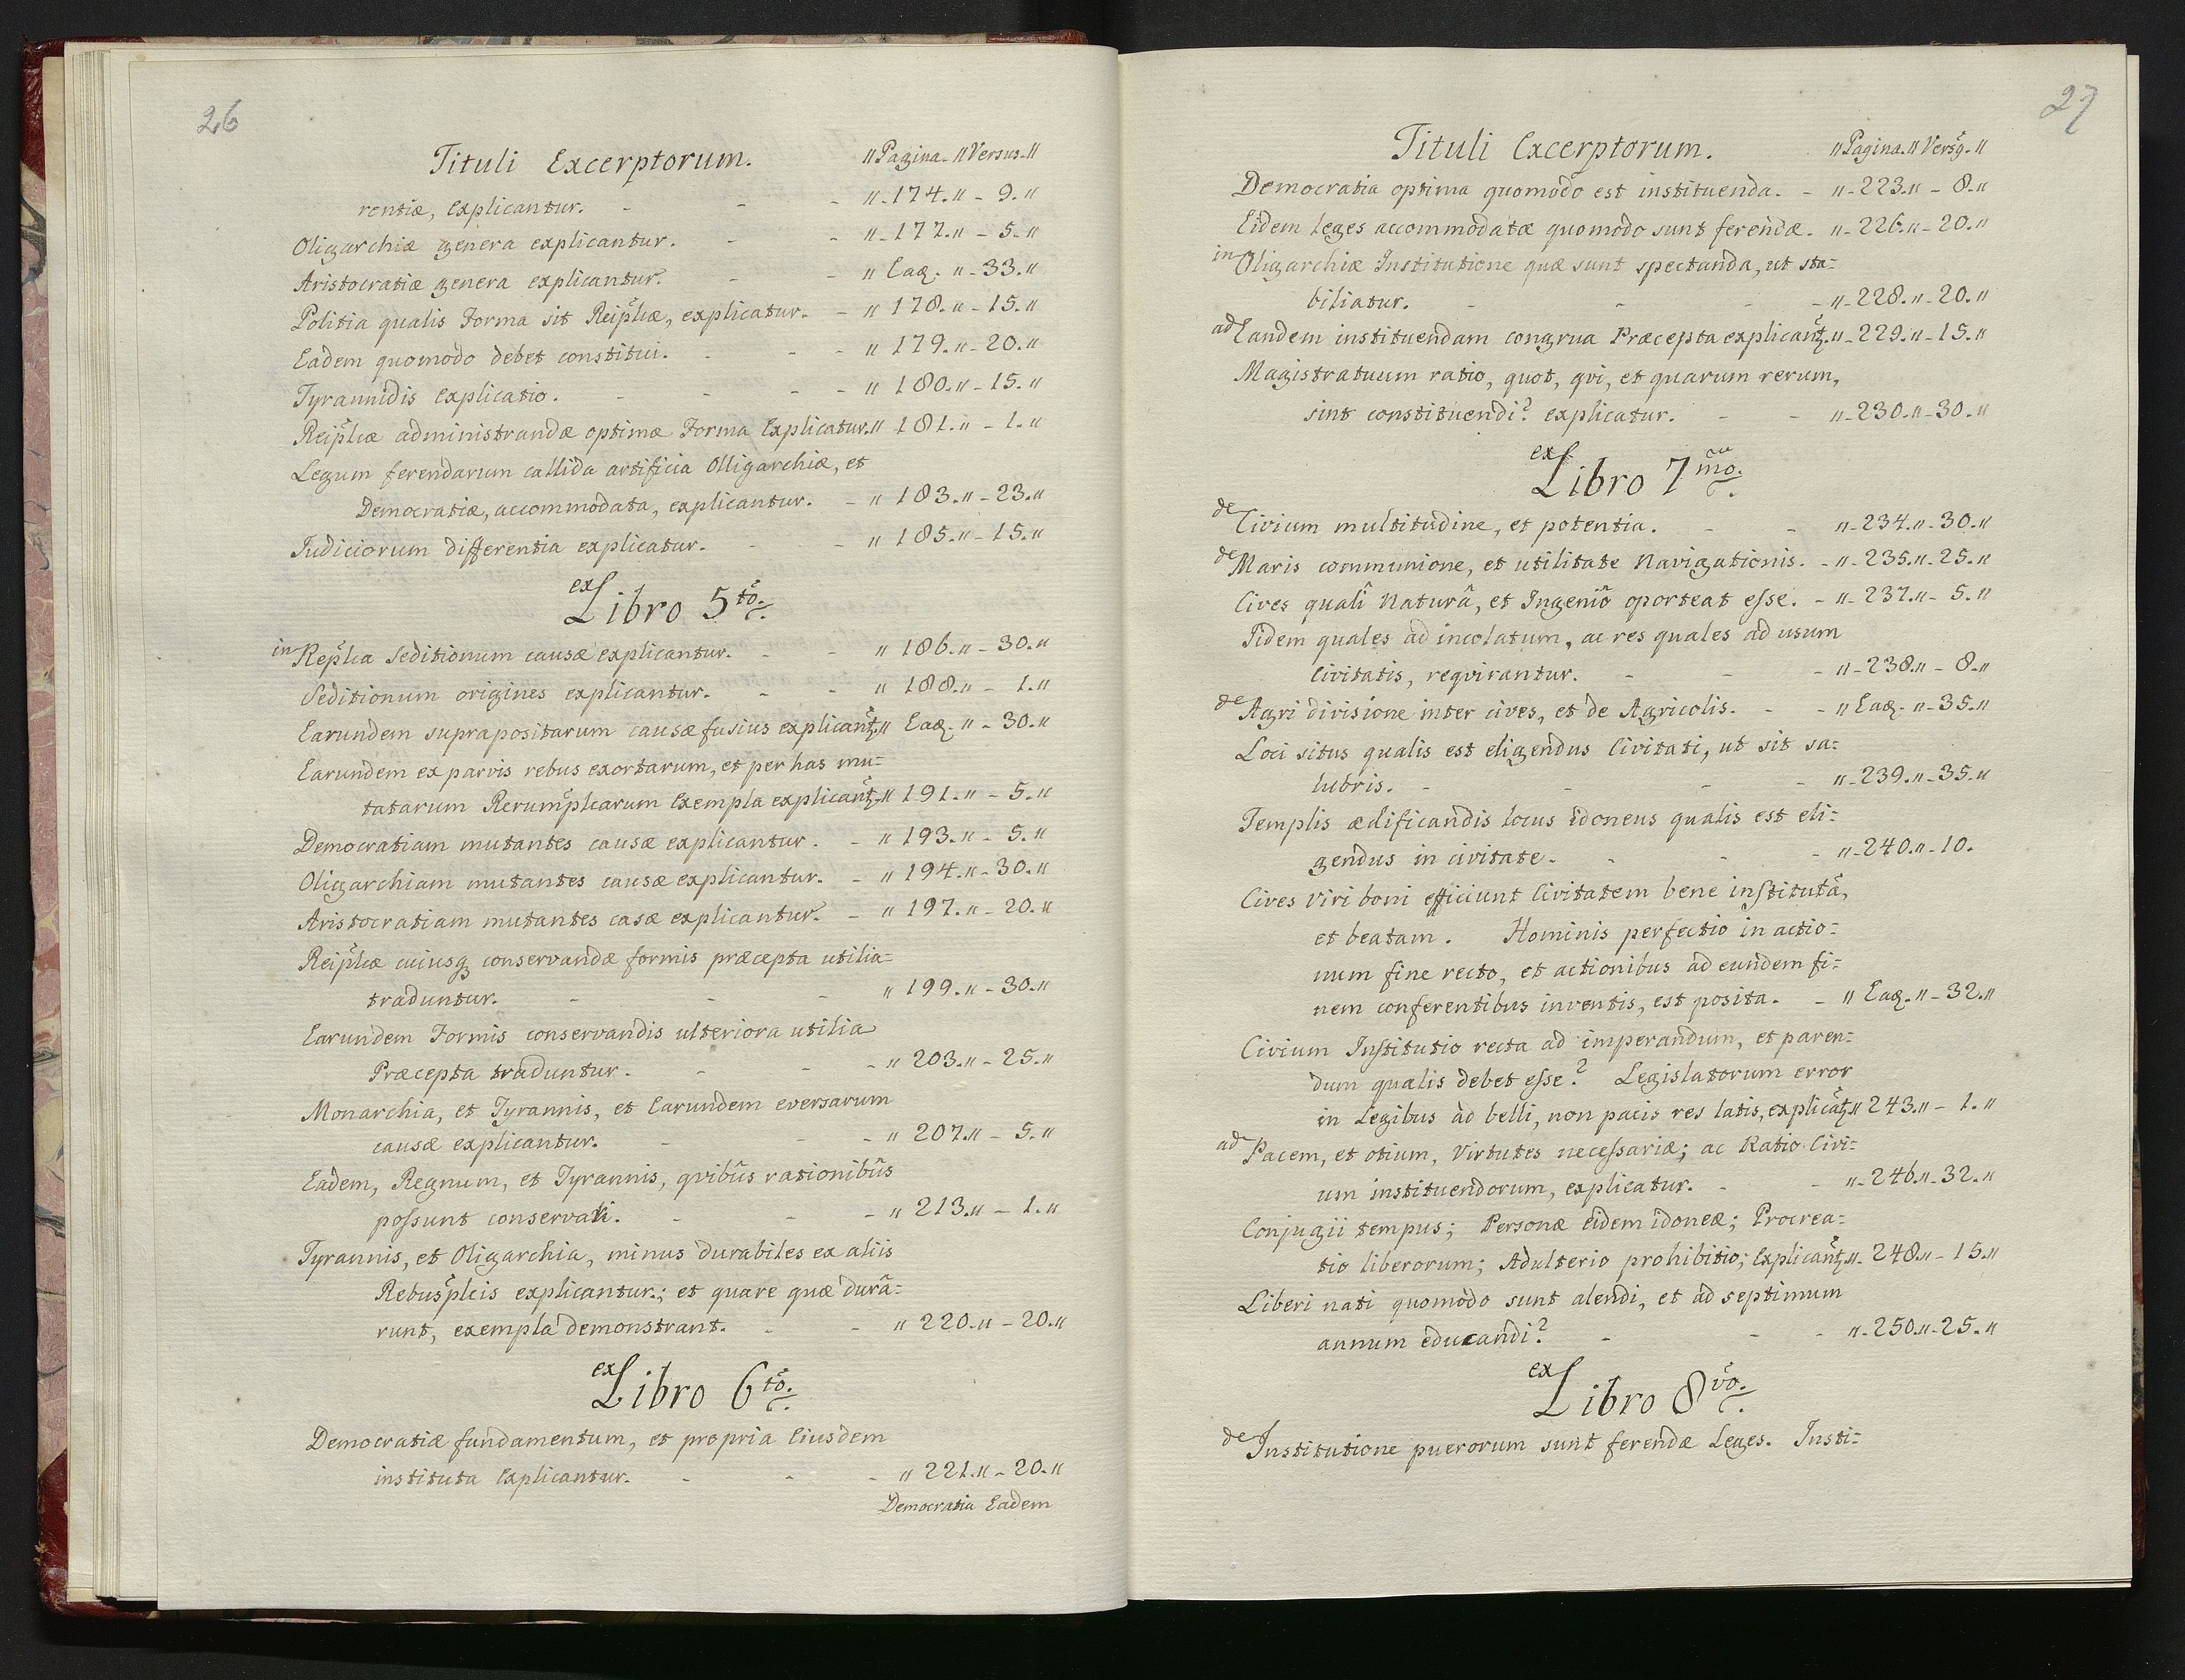 26
Tituli Excerptorum. "Pagina. "Versus."
rentiæ, Explicantur. - - - "-174." - 9."
Oligarchiæ genera explicantur. - - "-177." - 5."
Aristocratiæ genera explicantur. - - " Eaq. " - 33."
Politia qualis Forma sit Reiplicæ, explicatur. - " 178." - 15."
Eadem quomodo debet constitui. - - - " 179." - 20."
Tyrannidis Explicatio. - - - " 180." - 15."
Reiplicæ administrandæ optimæ Forma Explicatur." 181." - 1."
Legum ferendarum callida artificia Olligarchiæ, et
Democratiæ, accommodata, explicantur. - " 183." - 23."
Iudiciorum differentia explicatur. - - " 185." - 15."
ex Libro 5to.
in Replica Seditionum causæ explicantur. - - " 186." - 30."
Seditionum origines explicantur. - - " 188." - 1."
Earundem suprapositarum causæ fusius explicantq." Eaq. " - 30."
Earundem ex parvis rebus exortarum, et per has mu=
tatarum Rerumplicarum Exempla explicantq." 191." - 5."
Democratiam mutantes causæ explicantur. - " 193." - 5."
Oligarchiam mutantes causæ explicantur. - " 194." - 30."
Aristocratiam mutantes casæ explicantur. - " 197." - 20."
Reiplicæ cuiusq conservandæ formis præcepta utilia=
traduntur. - - - " 199." - 30."
Earundem Formis conservandis ulteriora utilia
Præcepta traduntur. - - - " 203." - 25."
Monarchia, et Tyrannis, et Earundem eversarum
causæ explicantur. - - - " 207." - 5."
Eadem, Regnum, et Tyrannis, qvibûs rationibûs
possunt conservari. - - - " 213." - 1."
Tyrannis, et Oligarchia, minus durabiles ex aliis
Rebusplicis explicantur.; et quare quæ durâ=
runt, exempla demonstrant. - - " 220." - 20."
ex Libro 6to.
Democratiæ fundamentum, et propria Eiusdem
instituta Explicantur. - - - " 221." - 20."
Democratia Eadem
27
Tituli Excerptorum. "Pagina." Versq."
Democratia optima quomodo est instituenda. - "-223." - 8."
Eidem Leges accommodatæ quomodo sunt ferendæ. "-226."-20."
in Oligarchiæ Institutione quæ sunt spectanda, ut sta=
biliatur. - - - - "-228."-20."
ad Eandem instituendam congrua Præcepta explicantq."-229."-15."
Magistratuum ratio, quot, qvi, et quarum rerum,
sint constituendi? explicatur. - - "-230."-30."
ex Libro 7mo.
de Civium multitudine, et potentia. - - "-234."-30."
de Maris communione, et utilitate Navigationis. - "-235."-25."
Cives qualî Naturâ, et Ingeniô oporteat esse. - "-237."- 5."
Iidem quales ad incolatum, ac res quales ad usum
Civitatis, reqvirantur. - - - "-238." - 8."
de Agri divisione inter cives, et de Agricolis. - - " Eaq. "-35."
Loci situs qualis est eligendus Civitati, ut sit sa=
lubris. - - - - "-239."-35."
Templis ædificandis locus idoneus qualis est eli=
gendus in civitate. - - - "-240."-10.
Cives viri boni efficiunt Civitatem bene institutã,
et beatam. Hominis perfectio in actio=
num fine recto, et actionibus ad eundem fi=
nem conferentibus inventis, est posita. - " Eaq. " - 32."
Civium Institutio recta ad imperandum, et paren=
dum qualis debet esse? Legislatorum error
in Legibus ad belli, non pacis res latis, explicatq" 243." - 1."
ad Pacem, et otium, Virtutes necessariæ; ac Ratio Civi=
um instituendorum, explicatur. - - "-246."-32."
Conjugii tempus; Personæ eidem idoneæ; Procrea=
tio liberorum; Adulterio prohibitio; Explicantq."- 248." - 15."
Liberi nati quomodo sunt alendi, et ad septimum
annum educandi? - - - "-250."-25."
ex Libro 8vo.
de Institutione puerorum sunt ferendæ Leges. Insti=